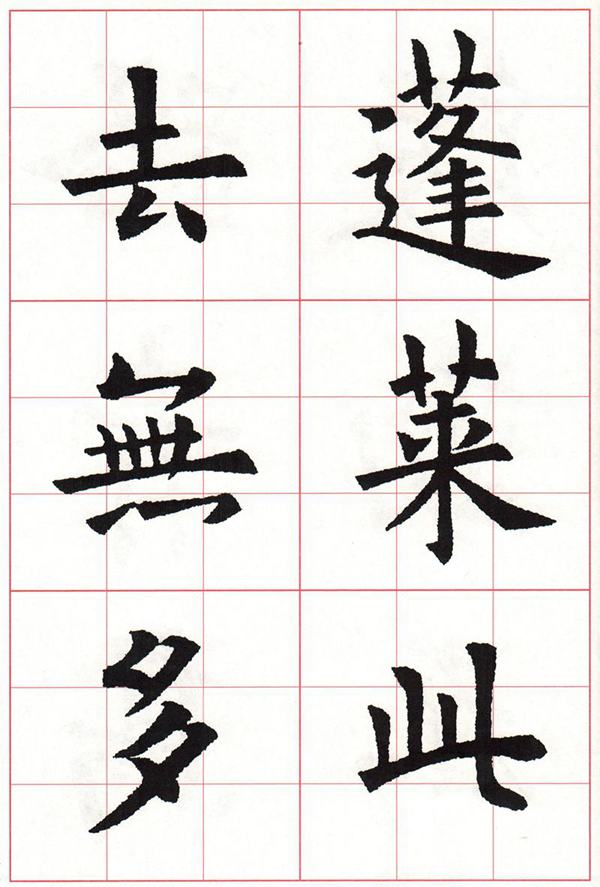 蓬萊此
去無多